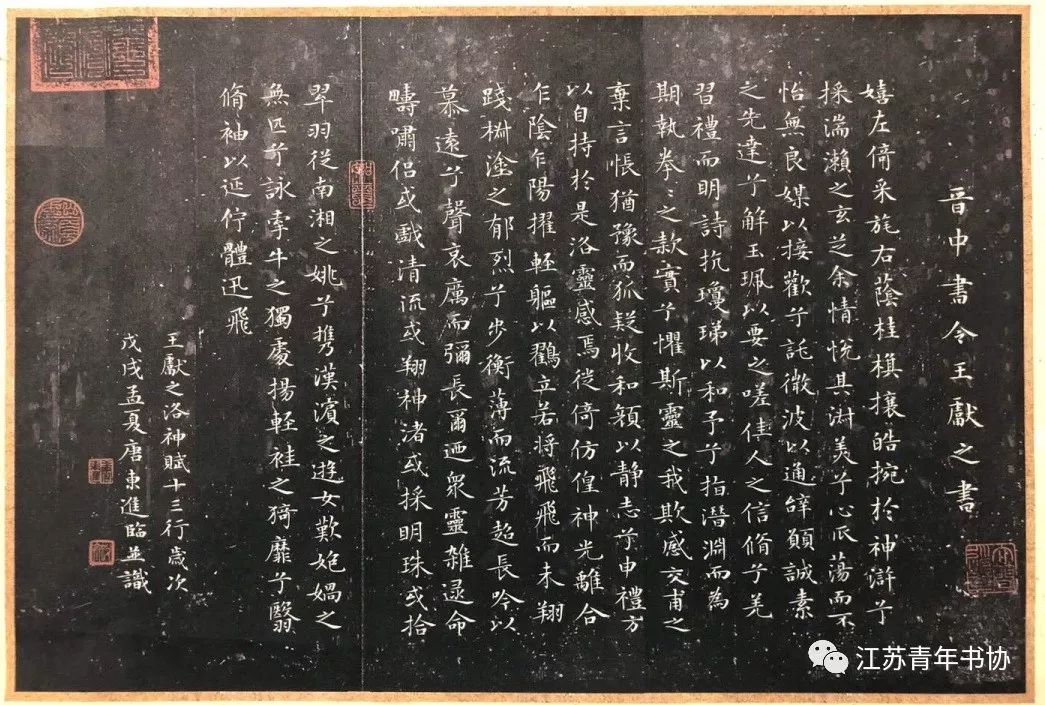 晉中書令王獻之書
嬉左倚采旄右蔭桂旗攘皓捥於神滸兮
採湍瀨之玄芝余情悅其淑美兮心𠂢蕩而不
怡無良媒以接歡兮託微波以通辭願誠素
之先達兮解玉珮以要之嗟佳人之信脩兮羌
習禮而明詩抗瓊珶以和予兮指潛淵而為
期執拳〻之款實兮懼斯靈之我欺感交甫之
棄言悵猶豫而狐疑收和顏以静志兮申禮方
以自持於是洛靈感焉徙倚仿偟神光離合
乍陰乍陽擢輕軀以鶴立若将飛飛而未翔
踐椒塗之郁烈兮步衡薄而流芳超長吟以
慕遠兮聲哀厲而彌長爾迺衆靈雜遝命
疇嘯侶或戲清流或翔神渚或採明珠或拾
翠羽從南湘之姚兮攜漢濱之遊女歎媿媧之
無匹兮詠牽牛之獨處揚輕袿之猗靡兮翳
脩袖以延佇體迅飛
王獻之洛神賦十三行歲次
戊戌孟夏唐東進臨並識
江苏青年书协